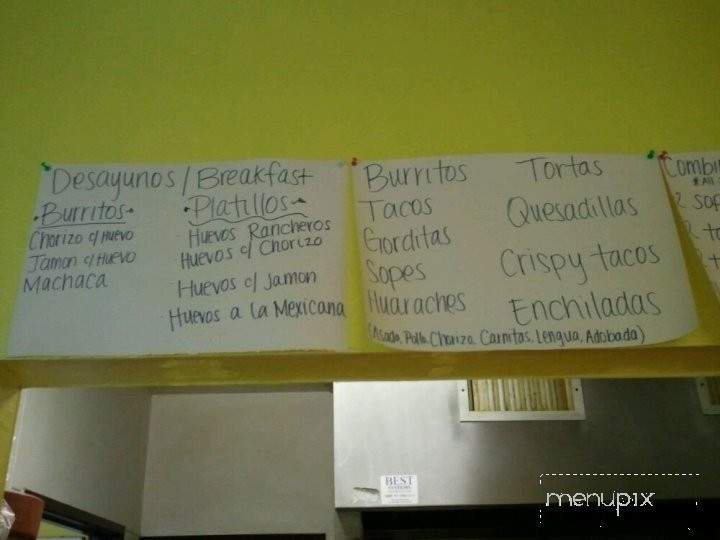 Desayunos / Breakfast
• Burritos •
Chorizo c/ Huevo
Jamon c/ Huevo
Machaca
• Platillos •
Huevos Rancheros
Huevos c/ Chorizo
Huevos c/ Jamon
Huevos a la Mexicana
Burritos
Tacos
Gorditas
Sopes
Huaraches
Tortas
Quesadillas
Crispy tacos
Enchiladas
(Asada, Pollo, Chorizo, Carnitas, Lengua, Adobada)
Combi
2 sop
BEST
menupix